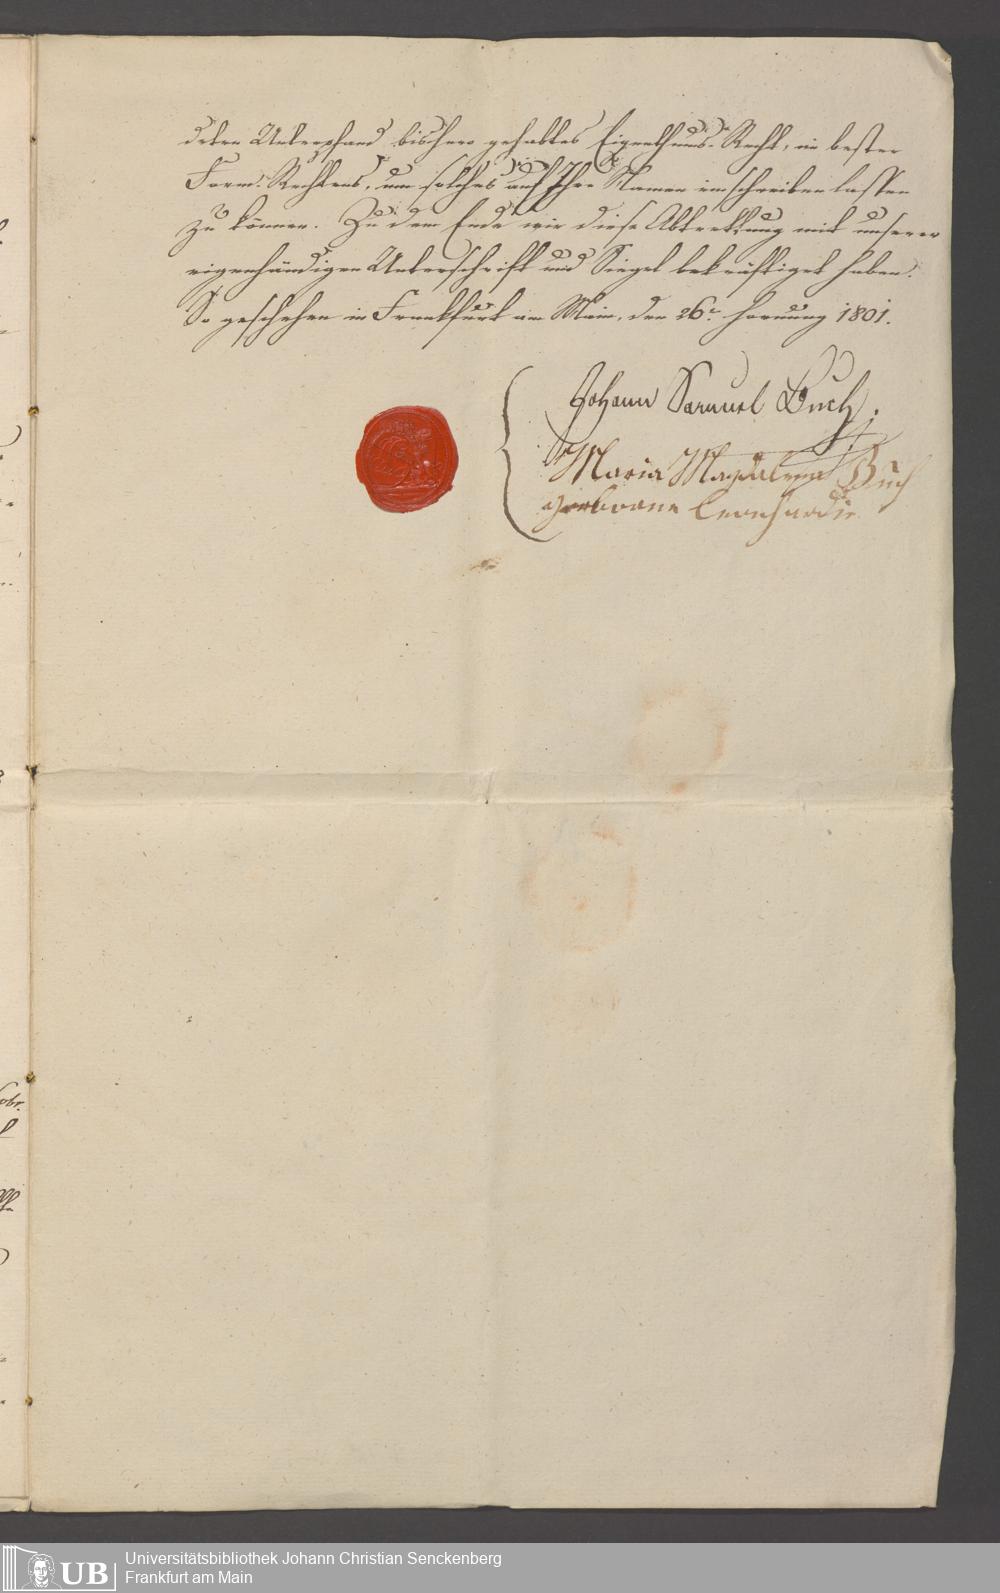 deten Unterpfand bishero gehabtes Eigenthums-Recht, in bester
Form Rechtens, um solches auf Ihre Namen einschreiben lassen
zu können. Zu dem Ende wir diese Abtrettung mit unserer
eigenhändigen Unterschrift und Siegel bekräftiget haben.
So geschehen in Frankfurt am Main, den 26t. Hornung 1801.
Johann Samuel Buch.
Maria Magdalena Buch
geborene Leonhardi
Universitätsbibliothek Johann Christian Senckenberg
Frankfurt am Main
UB